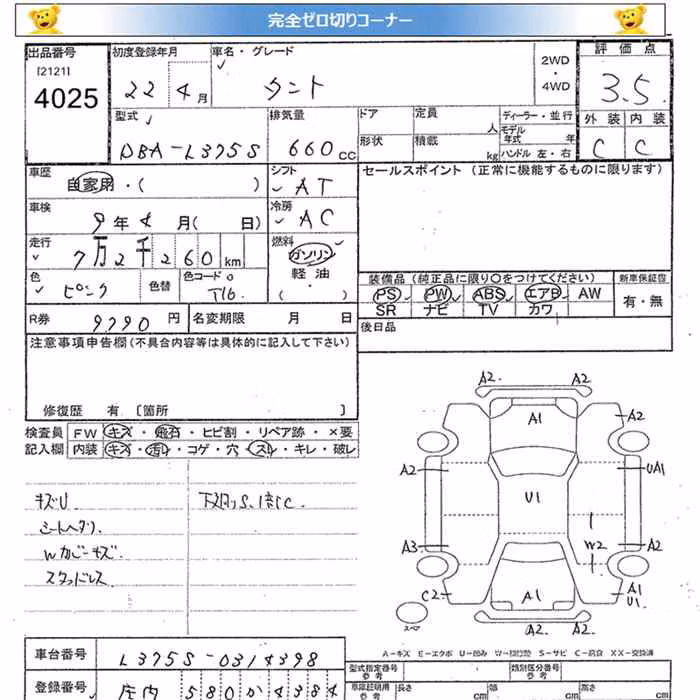 完全ゼロ切りコーナー
出品番号 初度登録年月 車名・グレード 2WD・4WD 評価点
[2121]
4025 22 4月 タント 3.5
型式 排気量 ドア 定員 人 ディーラー・並行 外装 内装
モデル年式 年
DBA-L375S 660cc 形状 積載 kg ハンドル 左・右 C C
車歴 シフト セールスポイント (正常に機能するものに限ります)
自家用・( ) AT
車検 冷房
9年4月( 日) AC
走行 燃料
7万2千260km ガソリン
軽油・( )
色 色替 色コード 装備品 (純正品に限り〇をつけてください) 新車保証書
ピンク T16 PS PW ABS エアB AW 有・無
SR ナビ TV カワ
R券 9790円 名変期限 月 日 後日品
注意事項申告欄(不具合内容等は具体的に記入して下さい)
修復歴 有 [箇所 ]
検査員記入欄 FW キズ・飛石・ヒビ割・リペア跡・×要
内装 キズ・汚レ・コゲ・穴・スレ・キレ・破レ
キズU 下廻りS、
シートヘタリ
Wカバーキズ
スタッドレス
A2. A2.
A1 A2
A2 UA1
U1
A3 W2 A2
C2 A1 A1
U1
スペア A2. A2
A-キズ E-エクボ U-凹み W-S-サビ C-腐食 XX-交換済
車台番号 L375S-0314398
型式指定番号 参考 類別区分番号 参考
登録番号 庄内 580か4384
車庫証明用 参考 長さ cm 幅 cm 高さ cm